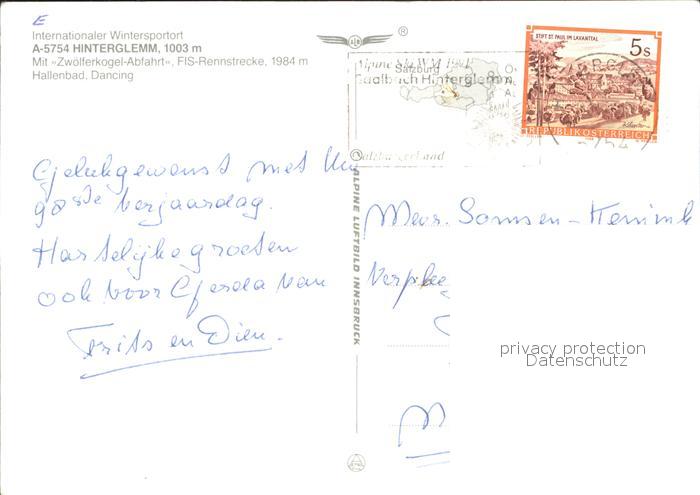 E
Internationaler Wintersportort
A-5754 HINTERGLEMM, 1003 m
Mit »Zwölferkogel-Abfahrt«, FIS-Rennstrecke, 1984 m
Hallenbad, Dancing
®
Alpine Ski WM
Salzburg
Saalbach Hinterglemm
Salzburger Land
STIFT ST. PAUL IM LAVANTTAL
5 s
REPUBLIK ÖSTERREICH
Gelukgewenst met Uw
90ste verjaardag.
Hartelijke groeten
ook voor Gerda van
Frits en Dien.
ALPINE LUFTBILD INNSBRUCK
Mevr. Somsen-
Verpleeg
M
privacy protection
Datenschutz